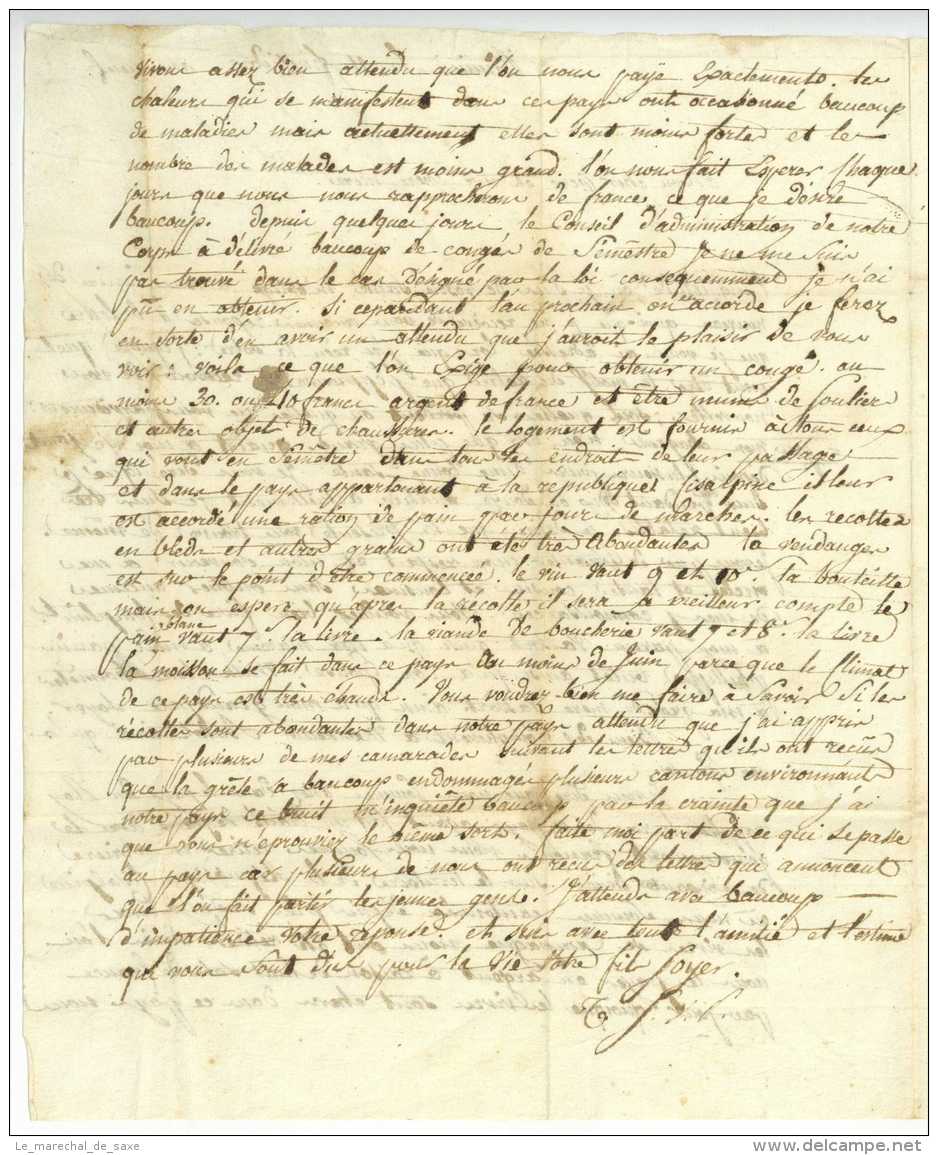 vivons assez bien attendu que l'on nous paÿe Exactemento. les
chaleurs qui se manifestent dans ces pays ont occasionné baucoup
de maladies mais actuellement elles sont moins fortes et les
nombre des malades est moins grand. l'on nous fait Esperer Chaque
jours que nous nous raprocherons de france ce que je désire
baucoup. depuis quelque jours le Conseil D'administration de notre
Corps à délivré baucoup de congés de Sémestre je ne me suis
pas trouvé dans le cas Désigné par la loi consequemment je n'ai
pû en obtenir. Si cependant l'an prochain on accorde je ferez
en sorte d'en avoir un attendu que j'auroit le plaisir de vous
voir : voila ce que l'on Exige pour obtenir un congé. au
moins 30. ou 40 francs argent de france et être munis de Souliers
et autres objets de chaussures. le logement est fournis à tous ceux
qui vont en Sémètre dans tous les endroit de leur passage
et dans le pays appartenant à la républiques Cisalpine il leur
est accordé une ration de pain par jours de marches. les recoltes
en bleds et autres grains ont étés très Abondantes la vendanges
est sur le point d'être commenceé. le vin vaut 9 et 10s. la bouteille
mais on espere qu'après la récolte il sera a meilleur compte le
pain blanc vaut 7s. la livre. la viande de boucherie vaut 7 et 8s. la livre
la moisson se fait dans ce pays au moins de Juin parce que le Climat
de ce pays est très chauds. Vous voudrez bien me faire à savoir si les
récoltes sont abondantes dans notre pays attendu que j'ai appris
par plusieurs de mes camarades suivant les lettres qu'ils ont recûs
que la grêle a baucoup endommagés plusieurs cantons environnant
notre pays ce bruit m'inquiète baucoup par la crainte que j'ai
que vous n'éprouviez le même sorts. faite moi part de ce qui se passe
au pays car plusieurs de nous ont reçus des lettre qui annoncent
que l'on fait partir les jeunes gens. J'attends avec baucoup
d'inpatience votre reponse. et suis avec tout l'amitié et l'estime
que vous sont dus pour la vie votre fils Soyer.
Le_marechal_de_saxe
delcampe.net